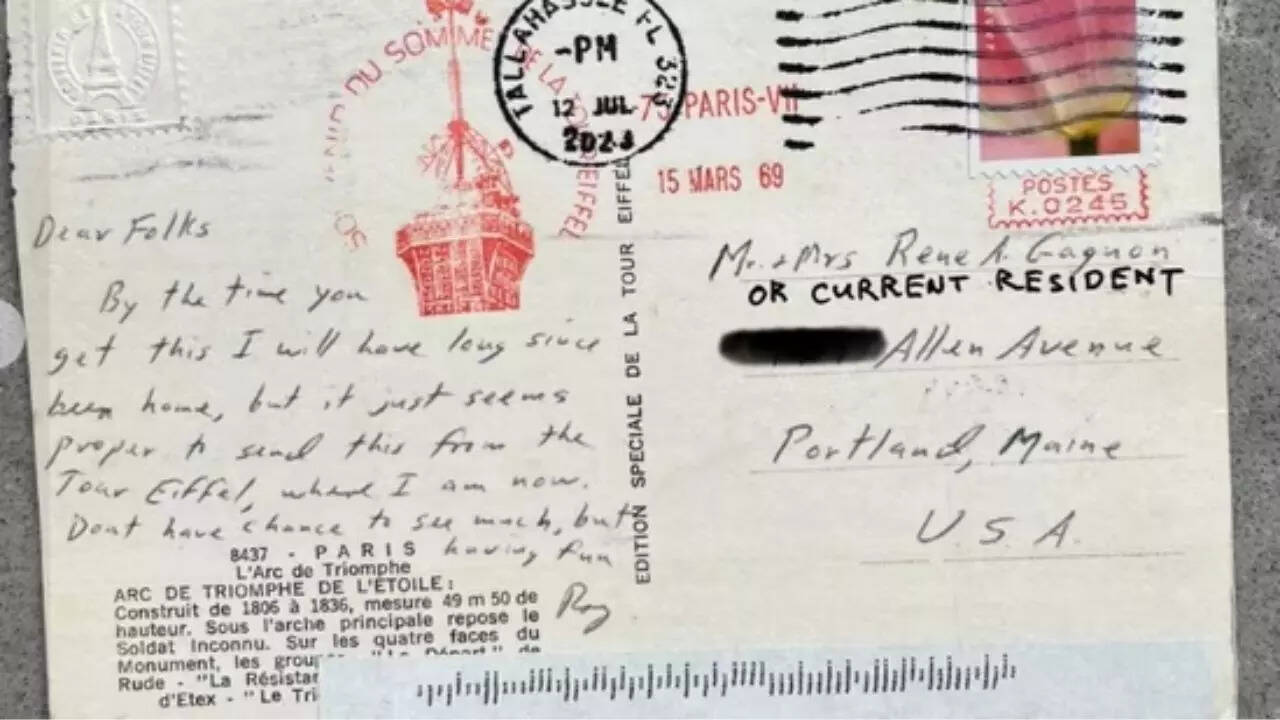 TALLAHASSEE FL 323
-PM
12 JUL
2023
DU SOMMET DE LA TOUR EIFFEL
75 PARIS-VII
15 MARS 69
POSTES
K.0245
Dear Folks
By the time you
get this I will have long since
been home, but it just seems
proper to send this from the
Tour Eiffel, where I am now.
Dont have chance to see much, but
having fun
Roy
8437 - PARIS
L'Arc de Triomphe
ARC DE TRIOMPHE DE L'ÉTOILE :
Construit de 1806 à 1836, mesure 49 m 50 de
hauteur. Sous l'arche principale repose le
Soldat Inconnu. Sur les quatre faces du
Monument, les "Le Départ" de
Rude - "La
d'Etex - "Le
EDITION SPECIALE DE LA TOUR EIFFEL
Mr. + Mrs Rene A. Gagnon
OR CURRENT RESIDENT
Allen Avenue
Portland, Maine
U.S.A.